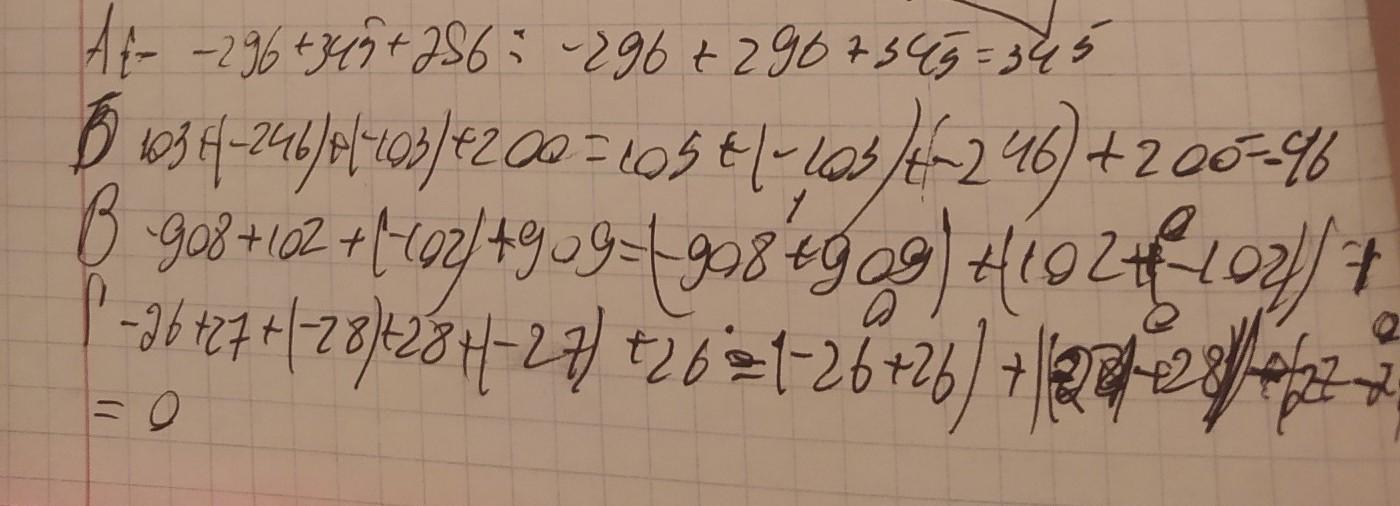 А -296+345+296= -296+296+345=345
Б 103+(-246)+(-103)+200=103+(-103)+(-246)+200=-46
В -908+102+(-102)+909=(-908+909)+(102+(-102))=1
Г -26+27+(-28)+28+(-27)+26=(-26+26)+(-28+28)+(27-2
= 0